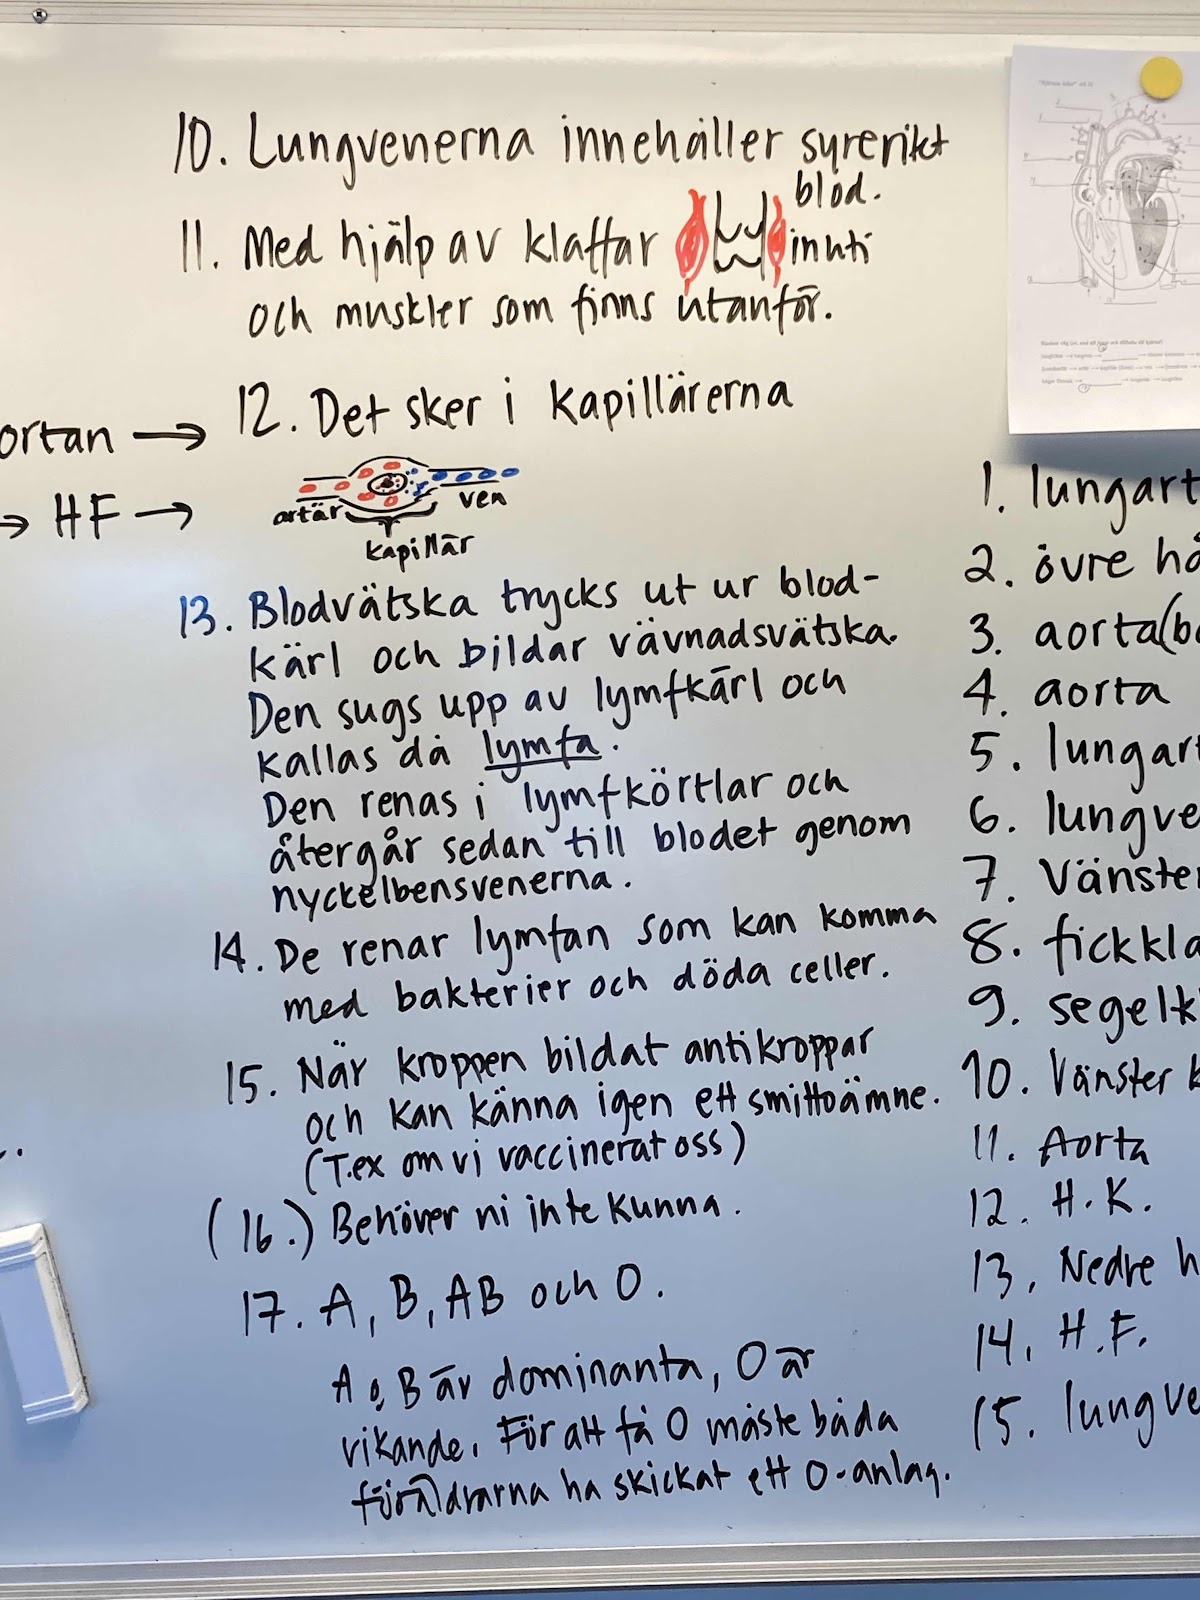 10. Lungvenerna innehåller syrerikt
blod.
11. Med hjälp av klaffar inuti
och muskler som finns utanför.
ortan →
12. Det sker i kapillärerna
→ HF →
artär
ven
kapillär
13. Blodvätska trycks ut ur blod-
kärl och bildar vävnadsvätska.
Den sugs upp av lymfkärl och
kallas då lymfa.
Den renas i lymfkörtlar och
återgår sedan till blodet genom
nyckelbensvenerna.
14. De renar lymfan som kan komma
med bakterier och döda celler.
15. När kroppen bildat antikroppar
och kan känna igen ett smittoämne.
(T.ex om vi vaccinerat oss)
(16.) Behöver ni inte kunna.
17. A, B, AB och O.
A o, B är dominanta, O är
vikande. För att få O måste båda
föräldrarna ha skickat ett O-anlag.
1. lungart
2. övre hå
3. aorta (bå
4. aorta
5. lungart
6. lungve
7. Vänster
8. fickkla
9. segelk
10. Vänster k
11. Aorta
12. H.K.
13. Nedre h
14. H.F.
15. lungve